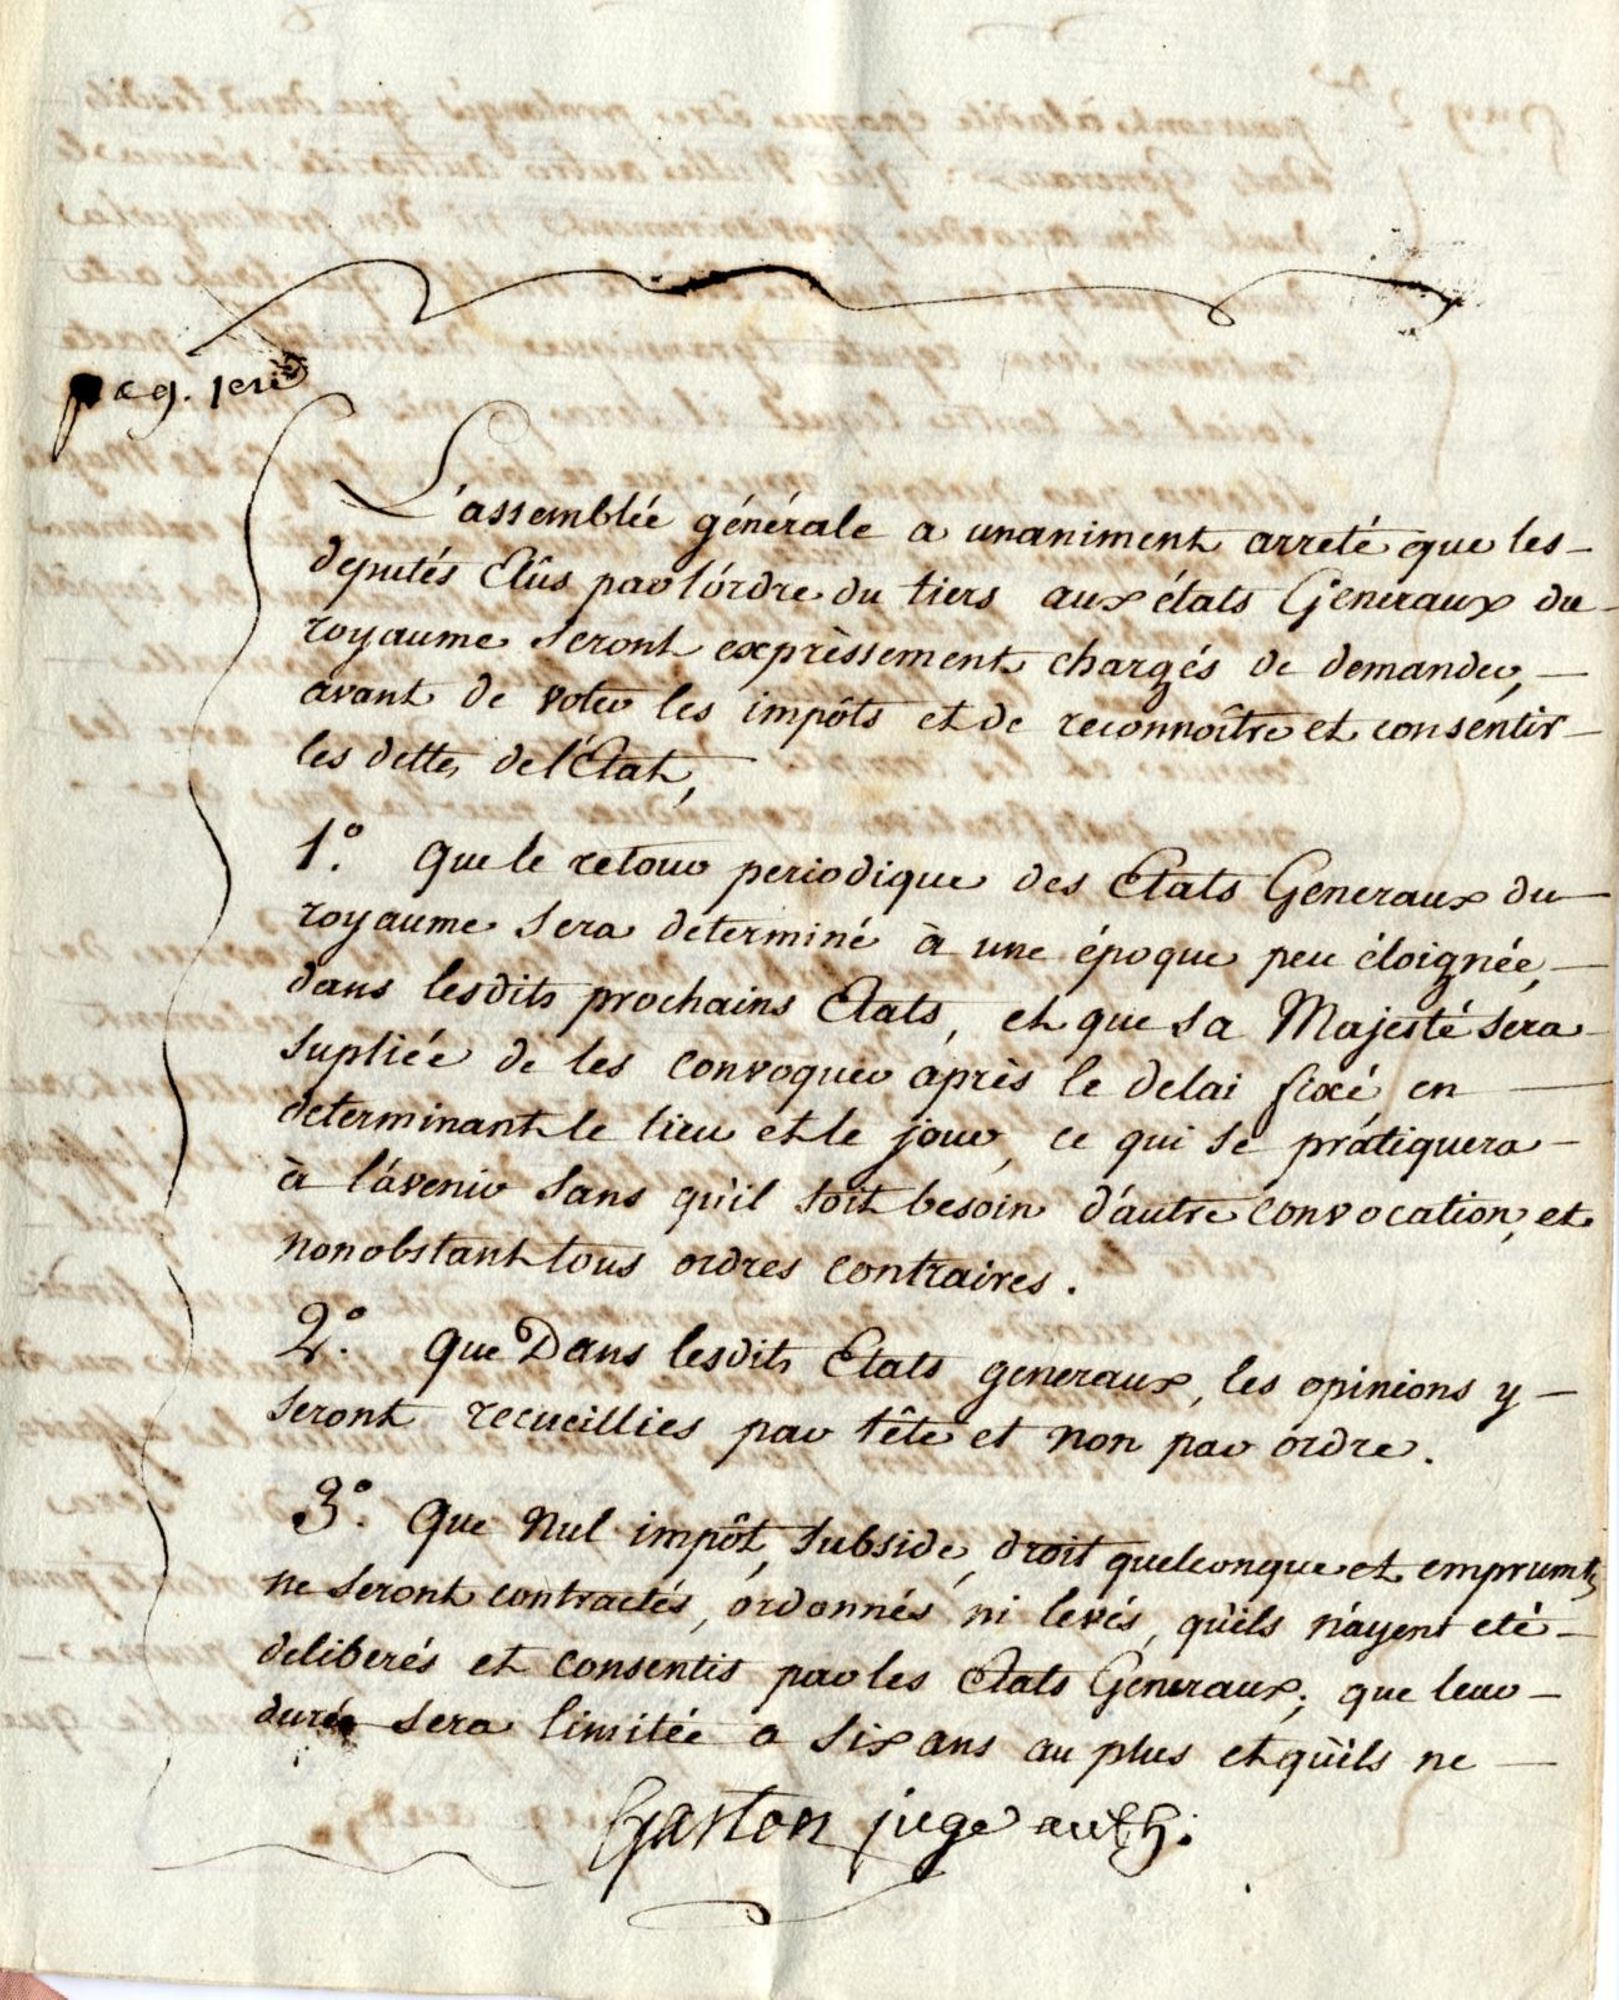 pag. 1ere
L'assemblée générale a unaniment arreté que les
deputés Elûs par l'órdre du tiers aux états Generaux du
royaume seront exprèssement chargés de demander,
avant de voter les impôts et de reconnoître et consentir
les dettes de l'Etat,
1.° Que le retour periodique des Etats Generaux du
royaume sera determiné à une époque peu éloignée,
dans lesdits prochains Etats, et que sa Majesté sera
supliée de les convoquer après le delai fixé, en
determinant le lieu et le jour, ce qui se pratiquera
à l'avenir sans qu'il soit besoin d'autre convocation, et
nonobstant tous ordres contraires.
2.° Que Dans lesdits Etats generaux, les opinions y
seront recueillies par tête et non par ordre.
3.° Que Nul impôt, subside, droit quelconque et emprumts
ne seront contractés, ordonnés ni levés, qu'ils n'ayent eté
deliberés et consentis par les Etats Generaux; que leur
durée sera limitée a six ans au plus et qu'ils ne
Gaston juge